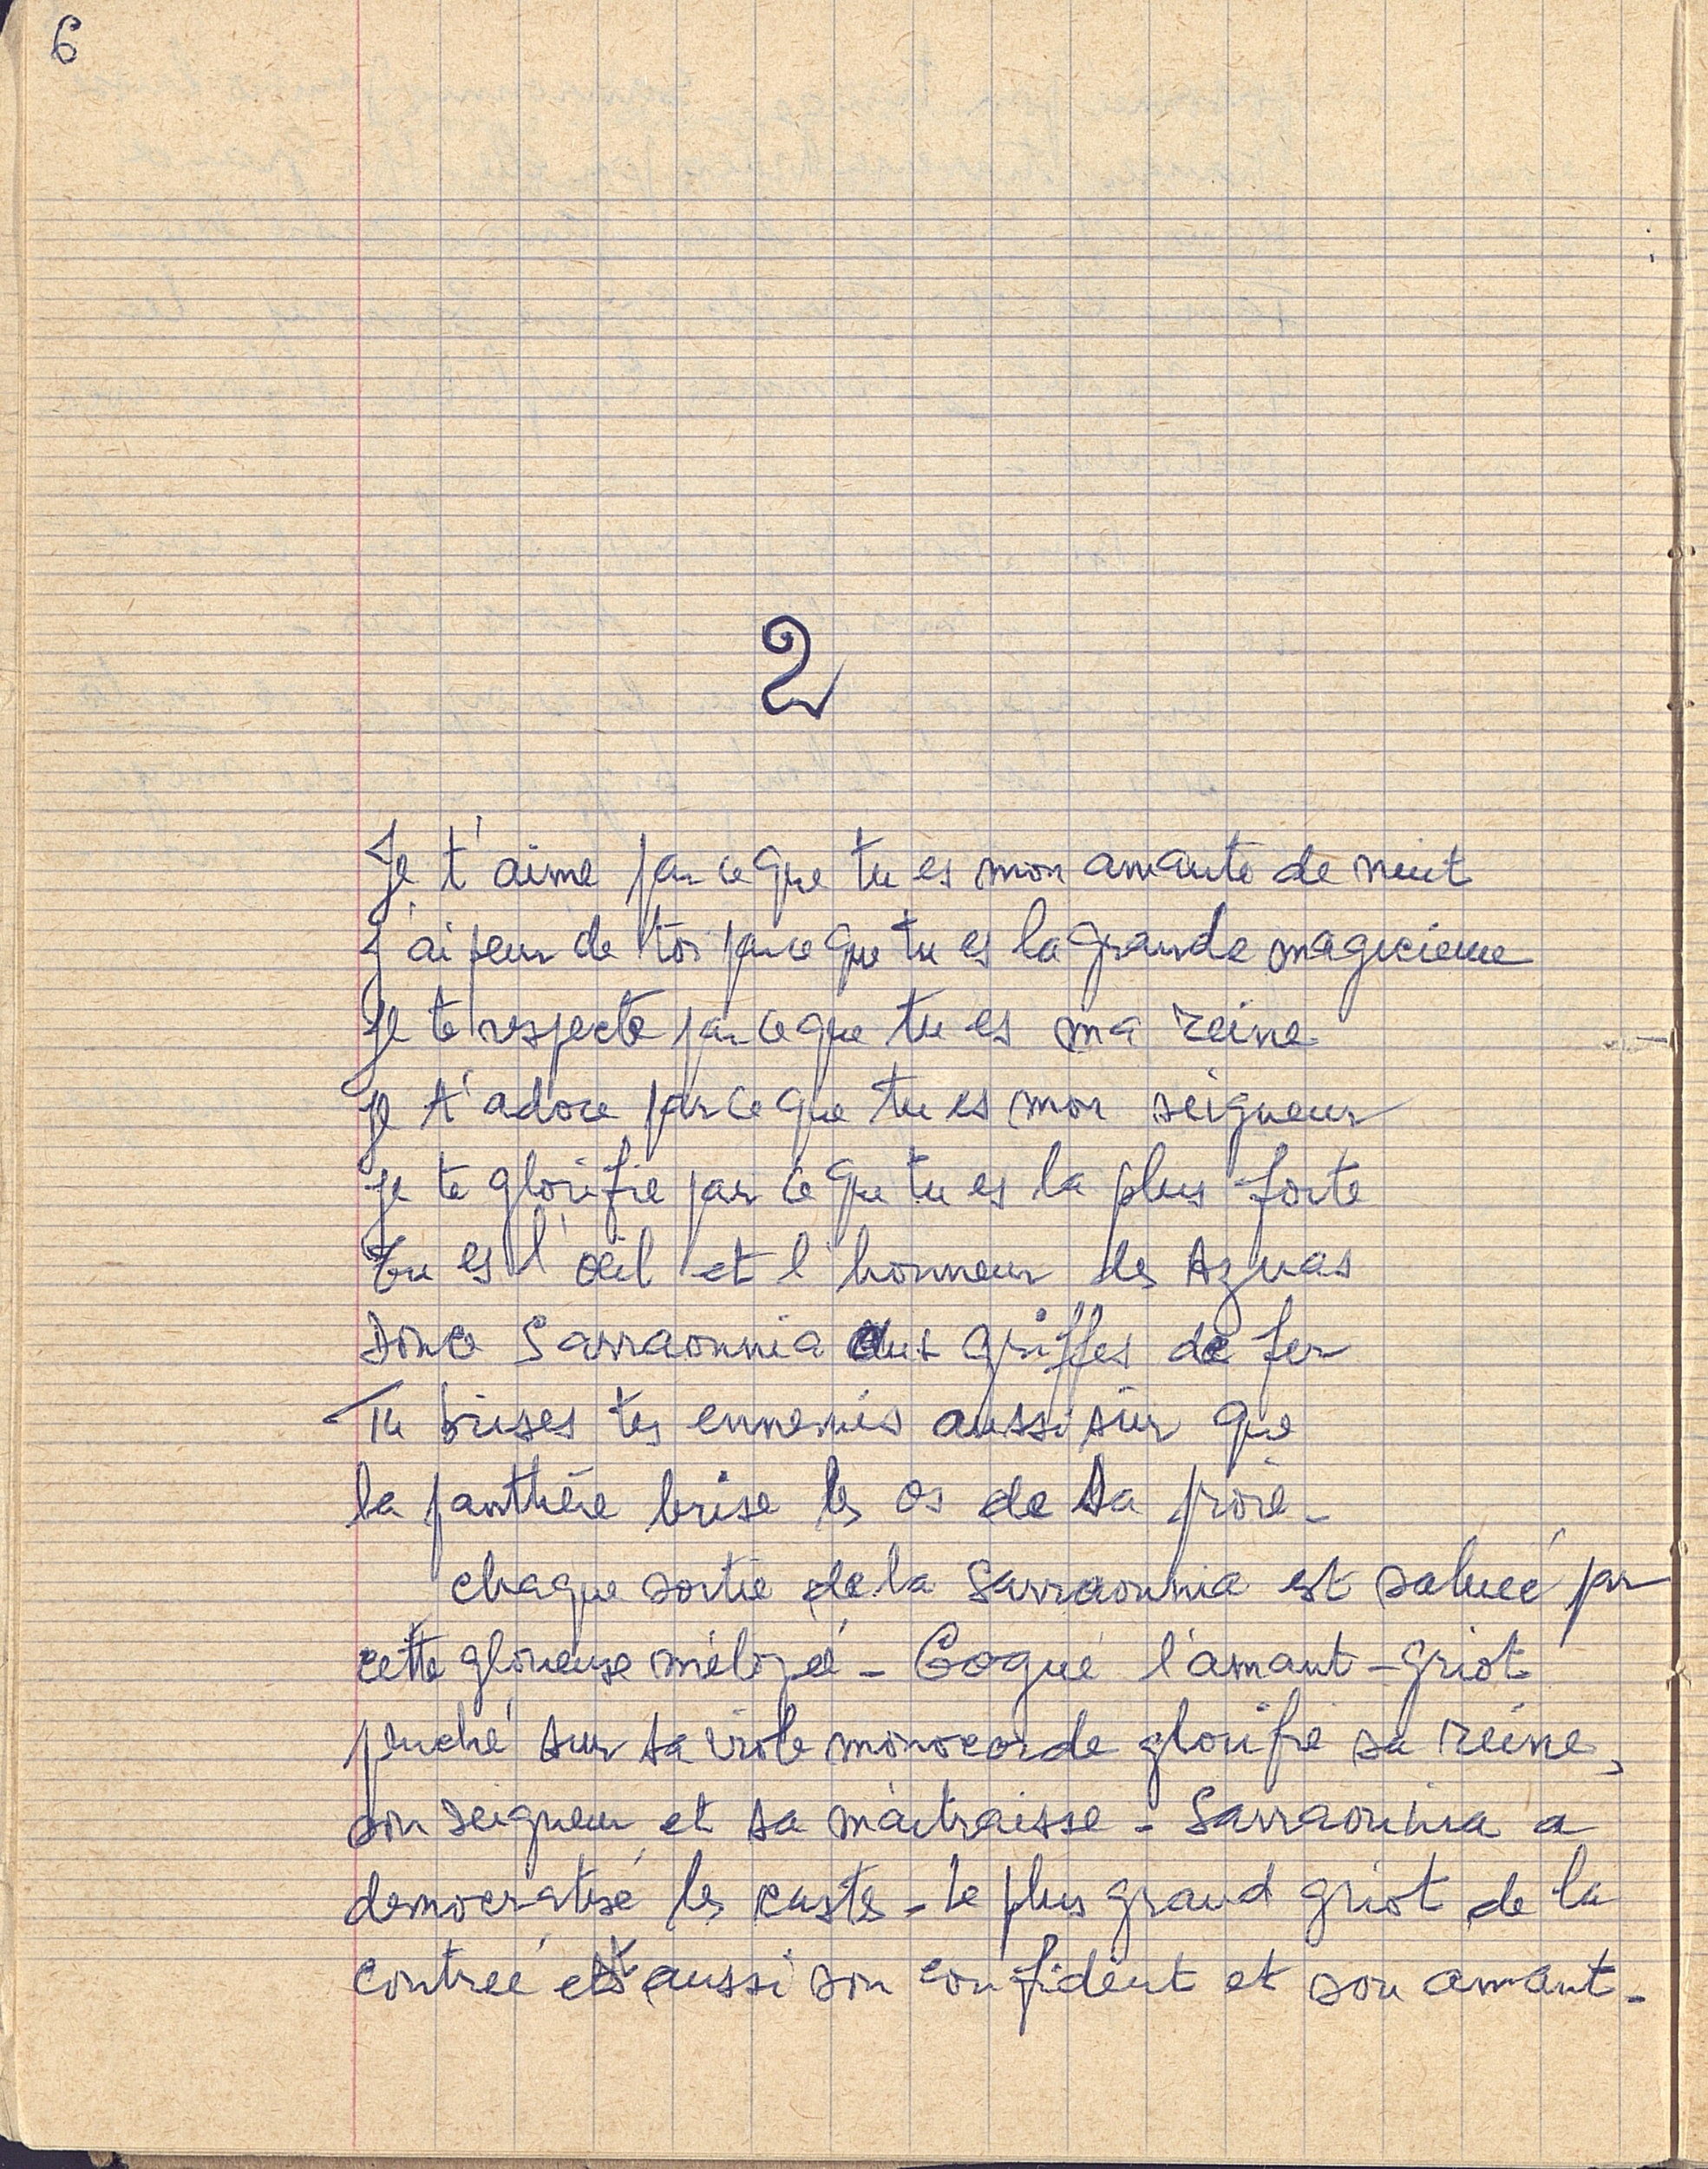 6
2
Je t'aime parceque tu es mon amante de nuit
J'ai peur de toi parceque tu es la grande magicienne
Je te respecte parceque tu es ma reine
Je t'adore parceque tu es mon seigneur
je te glorifie parceque tu es la plus forte
Tu es l'œil et l'honneur des Aznas
Donc Sarraounia aux griffes de fer
Tu brises tes ennemis aussi sûr que
la panthère brise les os de sa proie -
chaque sortie de la Sarraounia est saluée par
cette glorieuse mélopée - Gogué l'amant-griot
penché sur sa viole monocorde glorifie sa reine,
son seigneur et sa maitraisse - Sarraounia a
democratisé les castes - Le plus grand griot de la
contrée est aussi son confident et son amant -